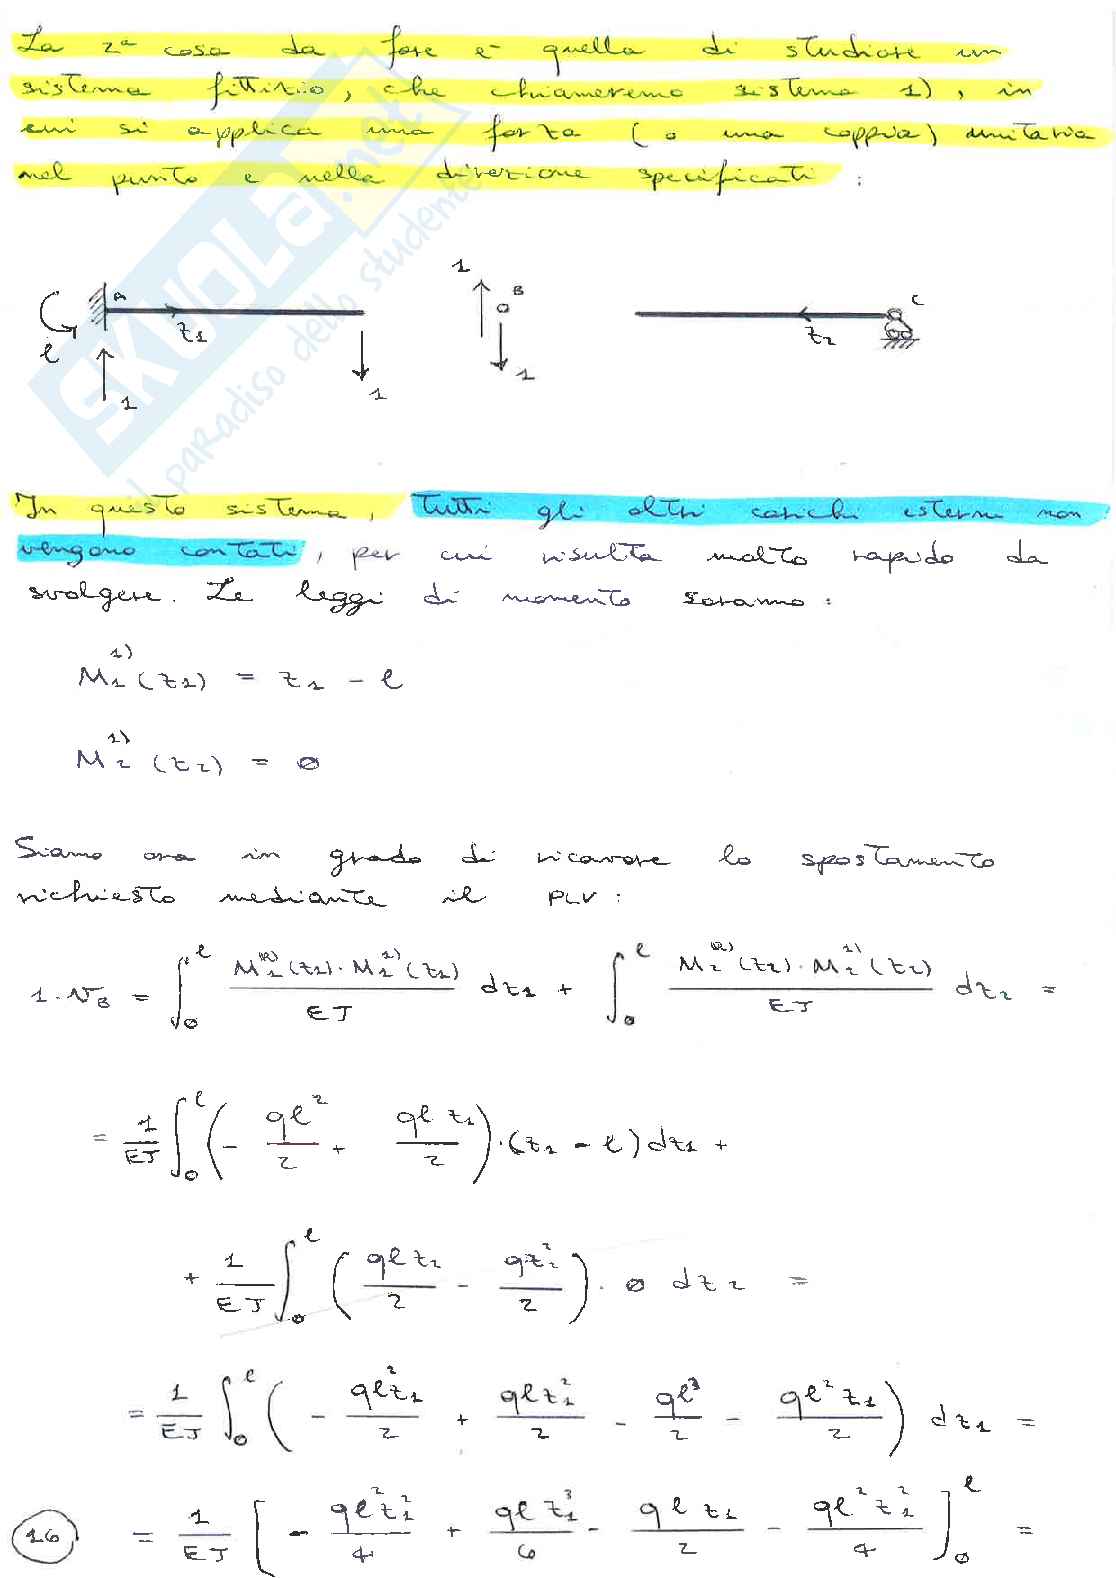 La 2ª cosa da fare è quella di studiare un
sistema fittizio, che chiameremo sistema 1), in
cui si applica una forza (o una coppia) unitaria
nel punto e nella direzione specificati :
SKUOLA.net
il paradiso dello studente
A z1 l 1 1
1 B 1
z2 C
In questo sistema, tutti gli altri carichi esterni non
vengono contati, per cui risulta molto rapido da
svolgere. Le leggi di momento saranno :
M1^1) (z1) = z1 - l
M2^1) (z2) = ø
Siamo ora in grado di ricavare lo spostamento
richiesto mediante il PLV :
1·vB = ∫0^l M1^(R)(z1)·M1^1)(z1) / EJ dz1 + ∫0^l M2^(R)(z2)·M2^1)(z2) / EJ dz2 =
= 1/EJ ∫0^l (- ql²/2 + qlz1/2)·(z1 - l) dz1 +
+ 1/EJ ∫0^l (qlz2/2 - qz2²/2)· ø dz2 =
= 1/EJ ∫0^l (- ql²z1/2 + qlz1²/2 - ql³/2 - ql²z1/2) dz1 =
= 1/EJ [- ql²z1²/4 + qlz1³/6 - qlz1/2 - ql²z1²/4]0^l =
16